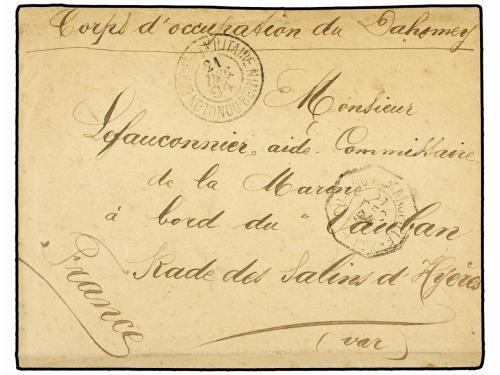 Corps d'occupation du Dahomey
21
DEC
94
COTONOU
Monsieur
Lefauconnier, aide-Commissaire
de la Marine
à bord du "Vauban
Rade des Salins d'Hyères
(var)
France